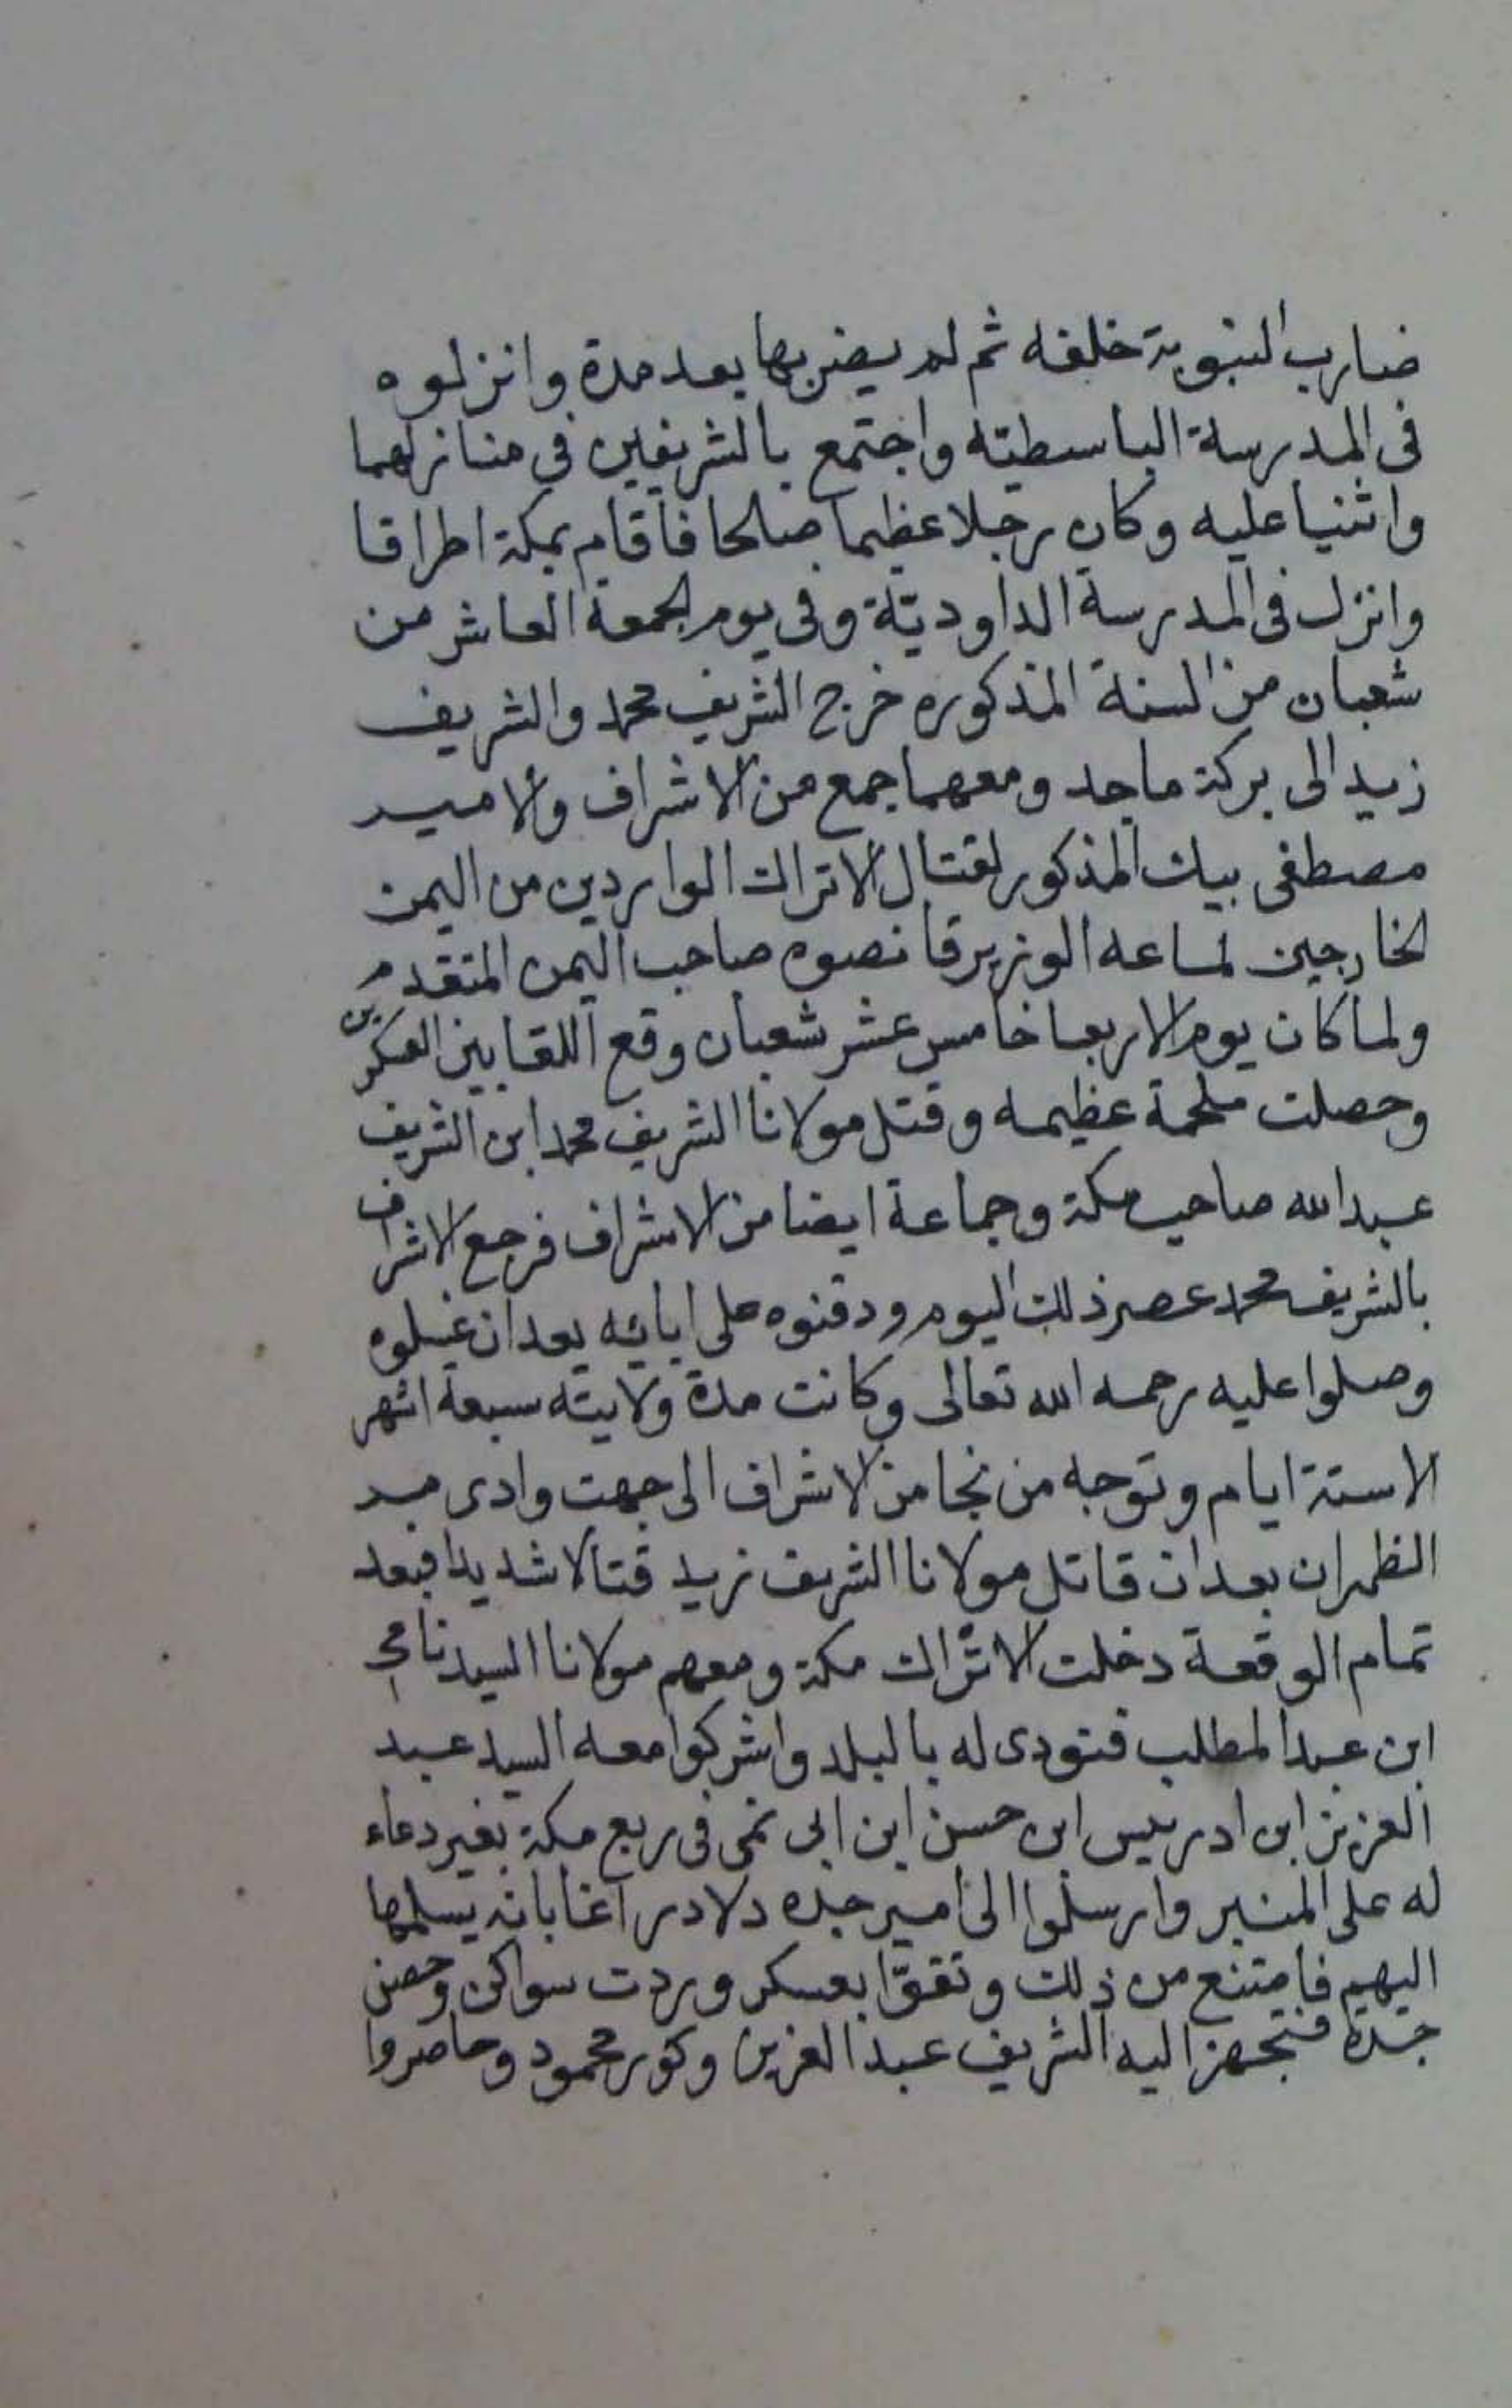 ضارب النبوبة خلفه ثم لم يضربها بعد مدة وانزلوه
فى المدرسة الباسطيته واجتمع بالشريفين في منازلهما
واثنيا عليه وكان رجلا عظيما صالحا فاقام بمكة اطراقا
وانزل فى المدرسة الداوديّة وفى يوم الجمعة العاشر من
شعبان من السنة المذكوره خرج الشريف محمد والشريف
زيد الى بركة ماجد ومعهما جمع من الاشراف والامير
مصطفى بيك المذكور لقتال الاتراك الواردين من اليمن
الخارجين لساعه الوزير قانصوه صاحب اليمن المتقدم
ولما كان يوم الاربعا خامس عشر شعبان وقع اللقا بين العسكرين
وحصلت ملحمة عظيمه وقتل مولانا الشريف محمد ابن الشريف
عبد الله صاحب مكة وجماعة ايضا من الاشراف فرجع الاشراف
بالشريف محمد عصر ذلك اليوم ودفنوه على ابائه بعد ان غسلوه
وصلوا عليه رحمه الله تعالى وكانت مدة ولايته سبعة اشهر
الاستة ايام وتوجه من نجا من الاشراف الى جهت وادى مر
الظهران بعد ان قاتل مولانا الشريف زيد قتالا شديدا فبعد
تمام الوقعة دخلت الاتراك مكة ومعهم مولانا السيد نامي
ابن عبد المطلب فنودى له بالبلد واشركوا معه السيد عبد
العزيز ابن ادريس ابن حسن ابن ابى نمى فى ربع مكة بغير دعاء
له على المنبر وارسلوا الى امير جده دلاور اغا بانه يسلمها
اليهم فامتنع من ذلك وتقوّا بعسكر وردت سواكن وحصن
جدة فتجهز اليه الشريف عبد العزيز وكور محمود وحاصروا